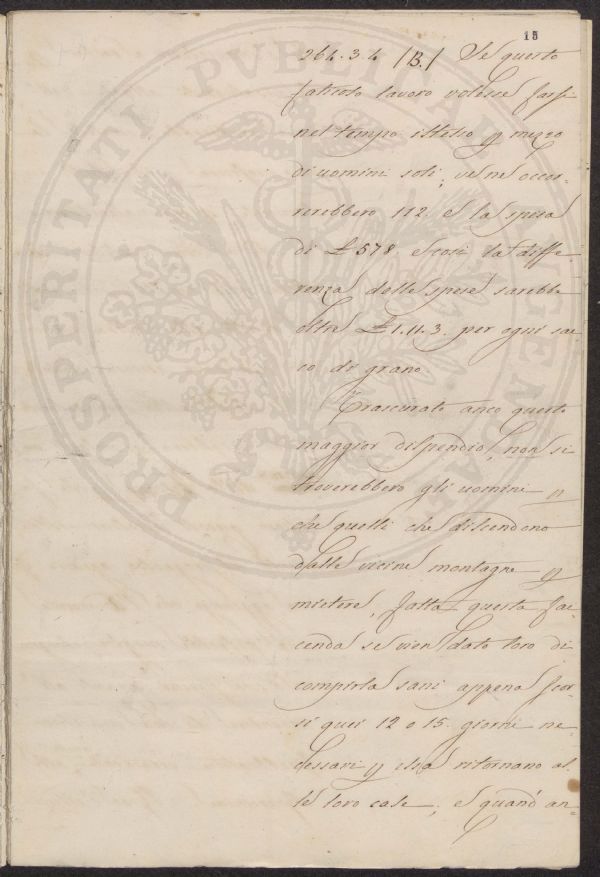 15
264.3.4 /B./ Se questo
faticoso lavoro volesse farsi
nel tempo istesso p mezzo
di uomini soli, ve ne occor-
rerebbero 112. e la spesa
di £ 578. e così la diffe
renza delle spese sarebbe
oltre £ 1.11.3. per ogni sac-
co di grano.
Trascurato anco questo
maggior dispendio, non si
troverebbero gli uomini p
che quelli che discendono
dalle vicine montagne p
mietere, fatta questa fac-
cenda se vien dato loro di
compirla sani appena scor-
si quei 12 o 15. giorni ne-
cessari p essa ritornano al-
le loro case, e quand'an-
PROSPERITATI PVBLICAE AVGENDAE